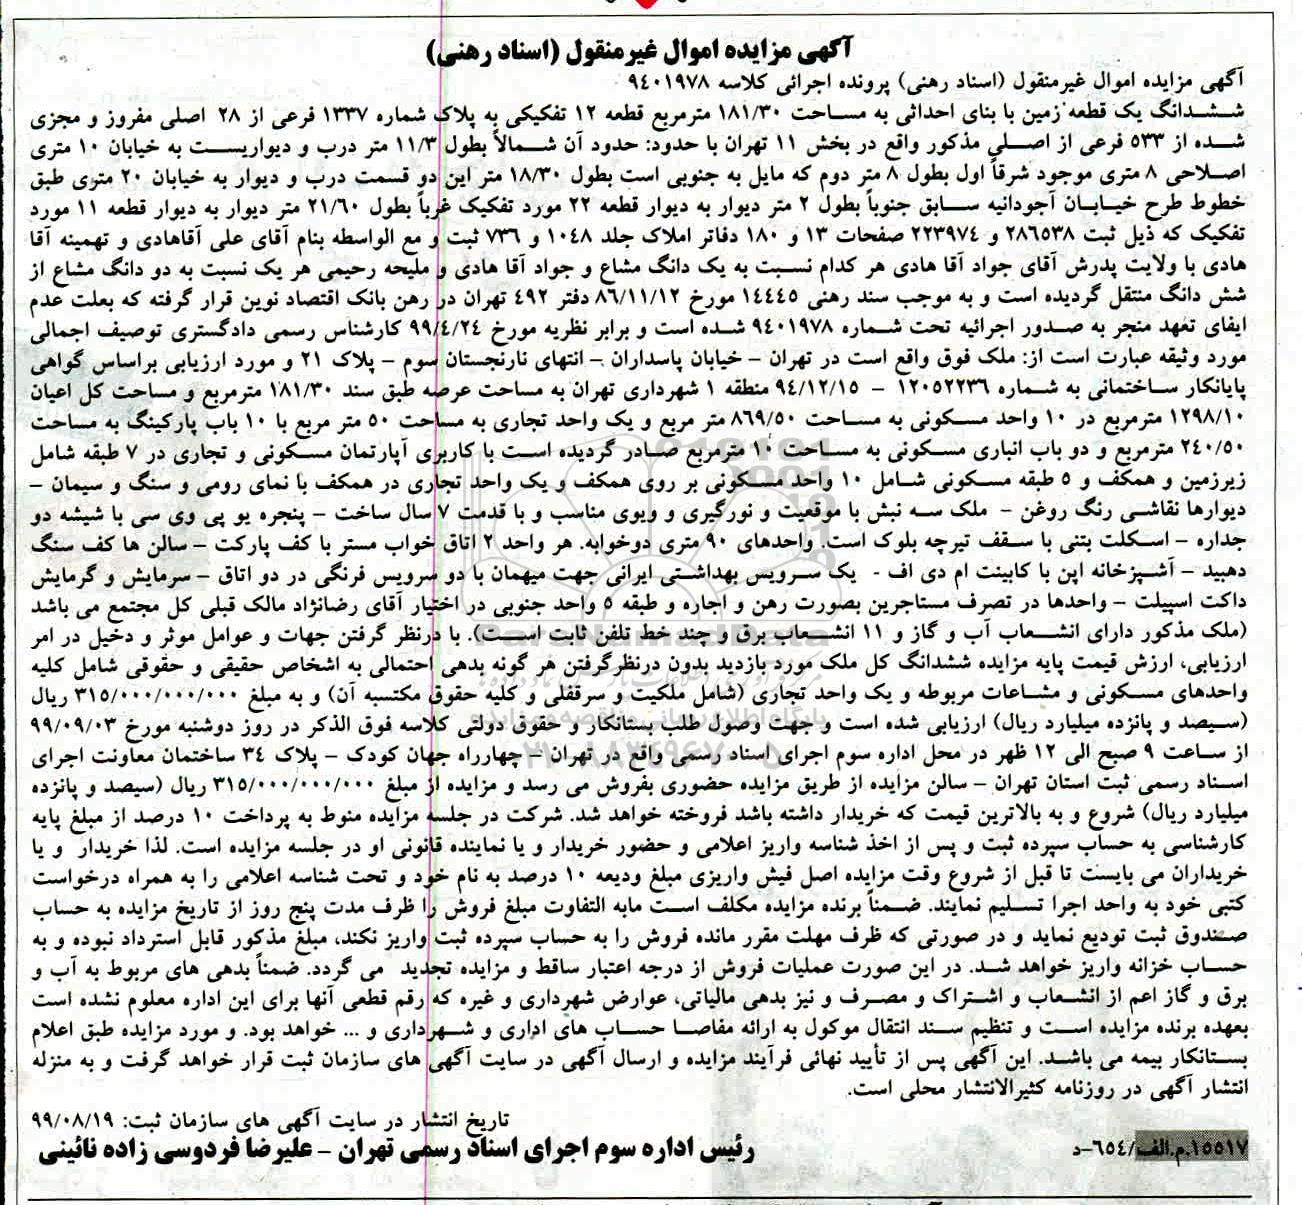 آگهی مزایده اموال غیرمنقول (اسناد رهنی)
آگهی مزایده اموال غیرمنقول (اسناد رهنی) پرونده اجرائی کلاسه ۹۴۰۱۹۷۸
ششدانگ یک قطعه زمین با بنای احداثی به مساحت ۱۸۱/۳۰ مترمربع قطعه ۱۲ تفکیکی به پلاک شماره ۱۳۳۷ فرعی از ۲۸ اصلی مفروز و مجزی
شده از ۵۳۳ فرعی از اصلی مذکور واقع در بخش ۱۱ تهران با حدود: حدود آن شمالاً بطول ۱۱/۳ متر درب و دیواریست به خیابان ۱۰ متری
اصلاحی ۸ متری موجود شرقاً اول بطول ۸ متر دوم که مایل به جنوبی است بطول ۱۸/۳۰ متر این دو قسمت درب و دیوار به خیابان ۲۰ متری طبق
خطوط طرح خیابان آجودانیه سابق جنوباً بطول ۲ متر دیوار به دیوار قطعه ۲۲ مورد تفکیک غرباً بطول ۲۱/۶۰ متر دیوار به دیوار قطعه ۱۱ مورد
تفکیک که ذیل ثبت ۲۸۶۵۳۸ و ۲۲۳۹۷۴ صفحات ۱۳ و ۱۸۰ دفاتر املاک جلد ۱۰۴۸ و ۷۳۶ ثبت و مع الواسطه بنام آقای علی آقاهادی و تهمینه آقا
هادی با ولایت پدرش آقای جواد آقا هادی هر کدام نسبت به یک دانگ مشاع و جواد آقا هادی و ملیحه رحیمی هر یک نسبت به دو دانگ مشاع از
شش دانگ منتقل گردیده است و به موجب سند رهنی ۱۴۴۴۵ مورخ ۸۶/۱۱/۱۲ دفتر ۴۹۲ تهران در رهن بانک اقتصاد نوین قرار گرفته که بعلت عدم
ایفای تعهد منجر به صدور اجرائیه تحت شماره ۹۴۰۱۹۷۸ شده است و برابر نظریه مورخ ۹۹/۴/۲۴ کارشناس رسمی دادگستری توصیف اجمالی
مورد وثیقه عبارت است از: ملک فوق واقع است در تهران – خیابان پاسداران – انتهای نارنجستان سوم – پلاک ۲۱ و مورد ارزیابی براساس گواهی
پایانکار ساختمانی به شماره ۱۲۰۵۲۲۳۶ – ۹۴/۱۲/۱۵ منطقه ۱ شهرداری تهران به مساحت عرصه طبق سند ۱۸۱/۳۰ مترمربع و مساحت کل اعیان
۱۲۹۸/۱۰ مترمربع در ۱۰ واحد مسکونی به مساحت ۸۶۹/۵۰ متر مربع و یک واحد تجاری به مساحت ۵۰ متر مربع با ۱۰ باب پارکینگ به مساحت
۲۴۰/۵۰ مترمربع و دو باب انباری مسکونی به مساحت ۱۰ مترمربع صادر گردیده است با کاربری آپارتمان مسکونی و تجاری در ۷ طبقه شامل
زیرزمین و همکف و ۵ طبقه مسکونی شامل ۱۰ واحد مسکونی بر روی همکف و یک واحد تجاری در همکف با نمای رومی و سنگ و سیمان –
دیوارها نقاشی رنگ روغن – ملک سه نبش با موقعیت و نورگیری و ویوی مناسب و با قدمت ۷ سال ساخت – پنجره یو پی وی سی با شیشه دو
جداره – اسکلت بتنی با سقف تیرچه بلوک است. واحدهای ۹۰ متری دوخوابه. هر واحد ۲ اتاق خواب مستر با کف پارکت – سالن ها کف سنگ
دهبید – آشپزخانه اپن با کابینت ام دی اف - یک سرویس بهداشتی ایرانی جهت میهمان با دو سرویس فرنگی در دو اتاق – سرمایش و گرمایش
داکت اسپیلت – واحدها در تصرف مستاجرین بصورت رهن و اجاره و طبقه ۵ واحد جنوبی در اختیار آقای رضانژاد مالک قبلی کل مجتمع می باشد
(ملک مذکور دارای انشعاب آب و گاز و ۱۱ انشعاب برق و چند خط تلفن ثابت است). با درنظر گرفتن جهات و عوامل موثر و دخیل در امر
ارزیابی، ارزش قیمت پایه مزایده ششدانگ کل ملک مورد بازدید بدون درنظرگرفتن هر گونه بدهی احتمالی به اشخاص حقیقی و حقوقی شامل کلیه
واحدهای مسکونی و مشاعات مربوطه و یک واحد تجاری (شامل ملکیت و سرقفلی و کلیه حقوق مکتسبه آن) و به مبلغ ۳۱۵/۰۰۰/۰۰۰/۰۰۰ ریال
(سیصد و پانزده میلیارد ریال) ارزیابی شده است و جهت وصول طلب بستانکار و حقوق دولتی کلاسه فوق الذکر در روز دوشنبه مورخ ۹۹/۰۹/۰۳
از ساعت ۹ صبح الی ۱۲ ظهر در محل اداره سوم اجرای اسناد رسمی واقع در تهران – چهارراه جهان کودک – پلاک ۳۴ ساختمان معاونت اجرای
اسناد رسمی ثبت استان تهران – سالن مزایده از طریق مزایده حضوری بفروش می رسد و مزایده از مبلغ ۳۱۵/۰۰۰/۰۰۰/۰۰۰ ریال (سیصد و پانزده
میلیارد ریال) شروع و به بالاترین قیمت که خریدار داشته باشد فروخته خواهد شد. شرکت در جلسه مزایده منوط به پرداخت ۱۰ درصد از مبلغ پایه
کارشناسی به حساب سپرده ثبت و پس از اخذ شناسه واریز اعلامی و حضور خریدار و یا نماینده قانونی او در جلسه مزایده است. لذا خریدار و یا
خریداران می بایست تا قبل از شروع وقت مزایده اصل فیش واریزی مبلغ ودیعه ۱۰ درصد به نام خود و تحت شناسه اعلامی را به همراه درخواست
کتبی خود به واحد اجرا تسلیم نمایند. ضمناً برنده مزایده مکلف است مابه التفاوت مبلغ فروش را ظرف مدت پنج روز از تاریخ مزایده به حساب
صندوق ثبت تودیع نماید و در صورتی که ظرف مهلت مقرر مانده فروش را به حساب سپرده ثبت واریز نکند، مبلغ مذکور قابل استرداد نبوده و به
حساب خزانه واریز خواهد شد. در این صورت عملیات فروش از درجه اعتبار ساقط و مزایده تجدید می گردد. ضمناً بدهی های مربوط به آب و
برق و گاز اعم از انشعاب و اشتراک و مصرف و نیز بدهی مالیاتی، عوارض شهرداری و غیره که رقم قطعی آنها برای این اداره معلوم نشده است
بعهده برنده مزایده است و تنظیم سند انتقال موکول به ارائه مفاصا حساب های اداری و شهرداری و ... خواهد بود. و مورد مزایده طبق اعلام
بستانکار بیمه می باشد. این آگهی پس از تأیید نهائی فرآیند مزایده و ارسال آگهی در سایت آگهی های سازمان ثبت قرار خواهد گرفت و به منزله
انتشار آگهی در روزنامه کثیرالانتشار محلی است.
تاریخ انتشار در سایت آگهی های سازمان ثبت: ۹۹/۰۸/۱۹
۱۵۵۱۷.م.الف/۶۵۴-د
رئیس اداره سوم اجرای اسناد رسمی تهران – علیرضا فردوسی زاده نائینی
ParsNamadData